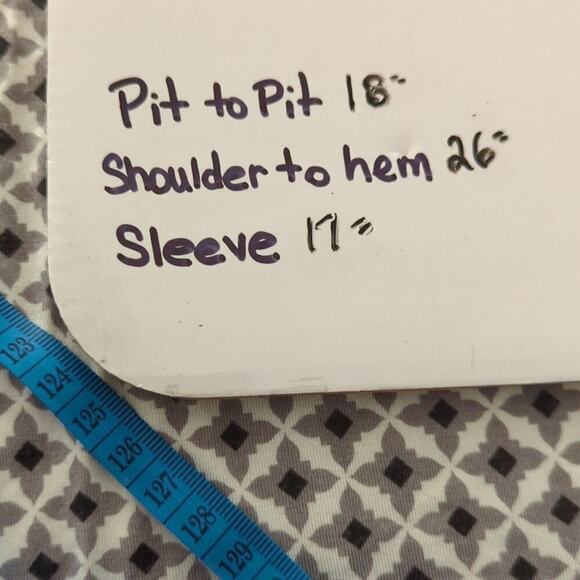 Pit to Pit 18"
Shoulder to hem 26"
Sleeve 17"
123
124
125
126
127
128
129